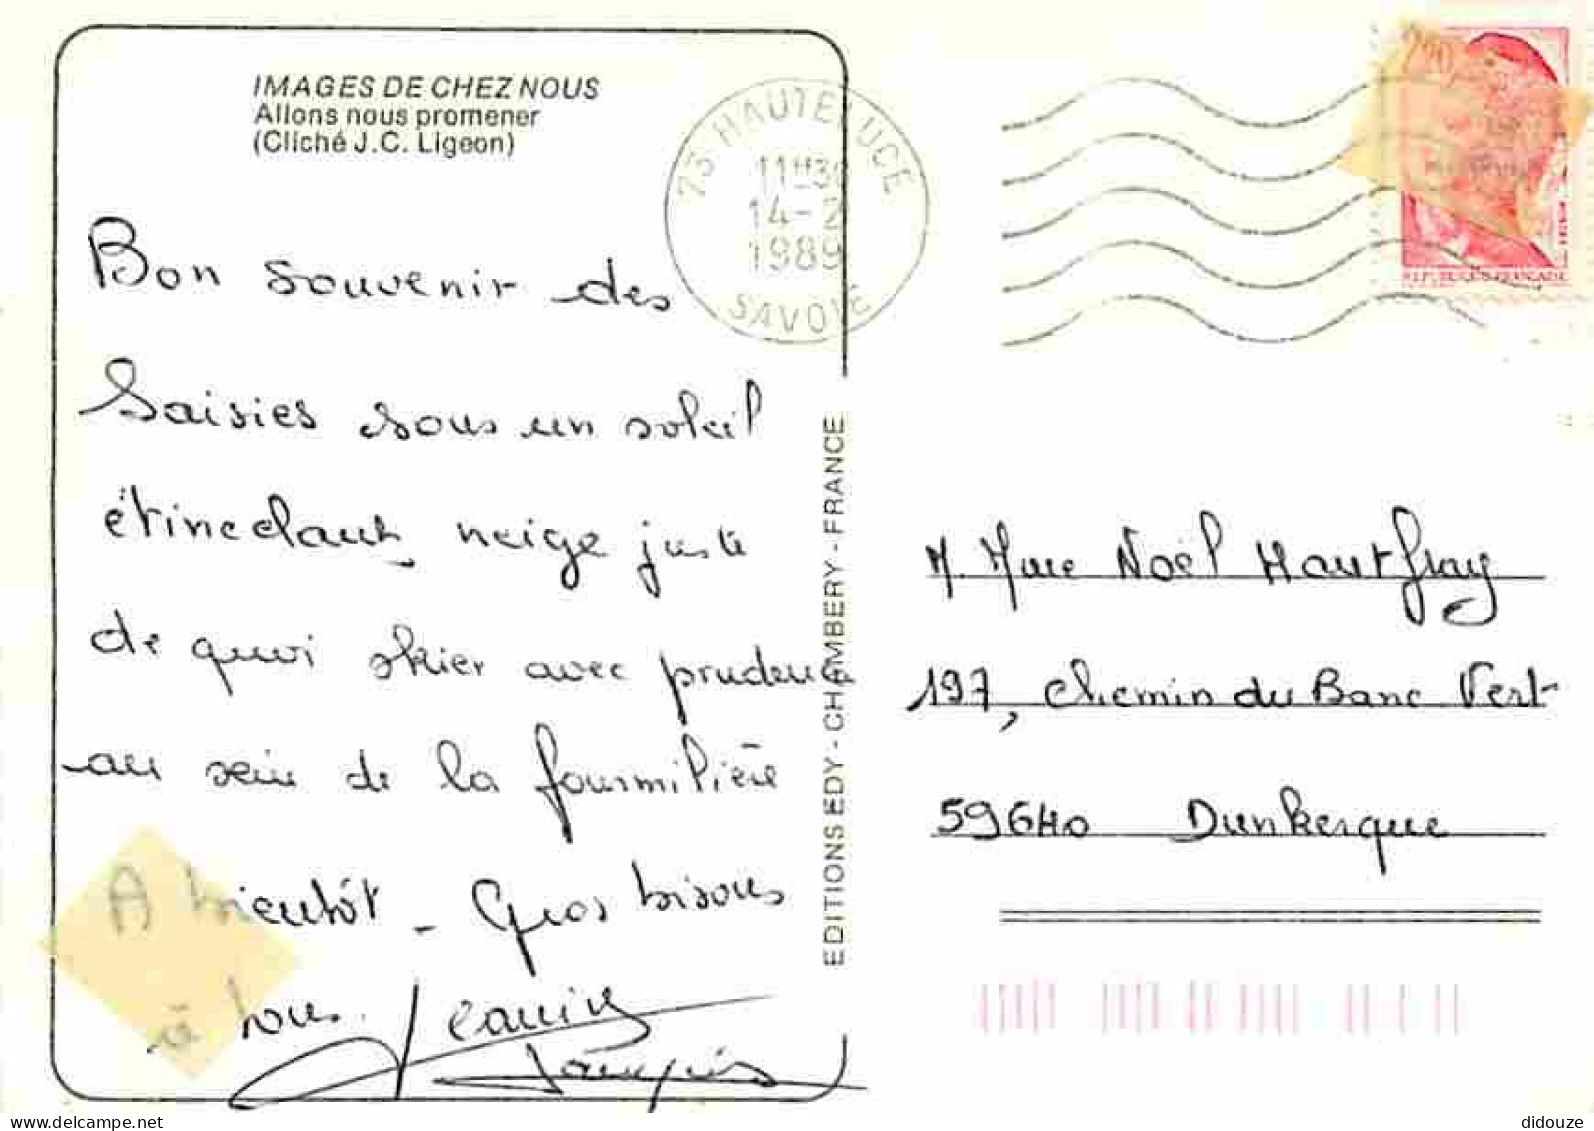 IMAGES DE CHEZ NOUS
Allons nous promener
(Cliché J.C. Ligeon)
73 HAUTELUCE
11H30
14-2
1989
SAVOIE
REPUBLIQUE FRANÇAISE
Bon souvenir des
Saisies sous un soleil
étincelant, neige juste
de quoi skier avec prudence
au sein de la fourmilière
A bientôt - Gros bisous
à tous.
EDITIONS EDY - CHAMBERY - FRANCE
M. Mme Noël Hautfray
197, Chemin du Banc Vert
59640 Dunkerque
www.delcampe.net
didouze